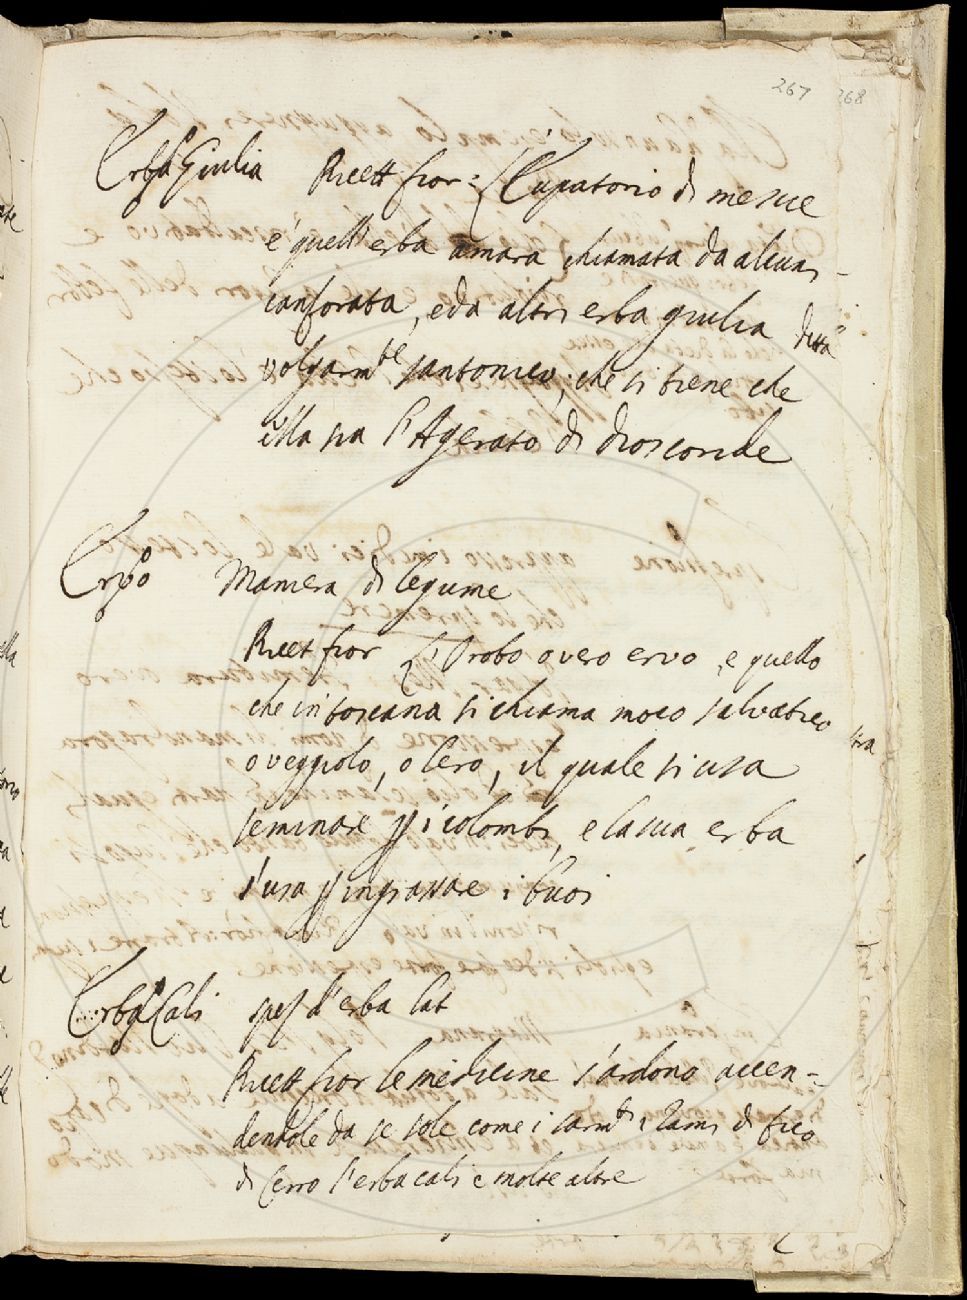 267 268
Erba Giulia Ricett fior: L'Eupatorio di mesue
è quell'erba amara chiamata da alcuni
canforata, e da altri erba giulia detta
volgarmte santonico, che si tiene che
ella sia l'Agerato di dioscoride
Ervo Maniera di legume
Ricet fior L'Orobo overo ervo, e quello
che in toscana si chiama moco salvatico
o veggiolo, o lero, il quale si usa
seminare p i colombi, e la sua erba
s'usa p ingrassare i buoi
Erba Cali spez d'erba lat
Ricett fior le medicine s'ardono accen-
dendole da se sole come i sarmti i rami di fico
di Cerro l'erba cali e molte altre